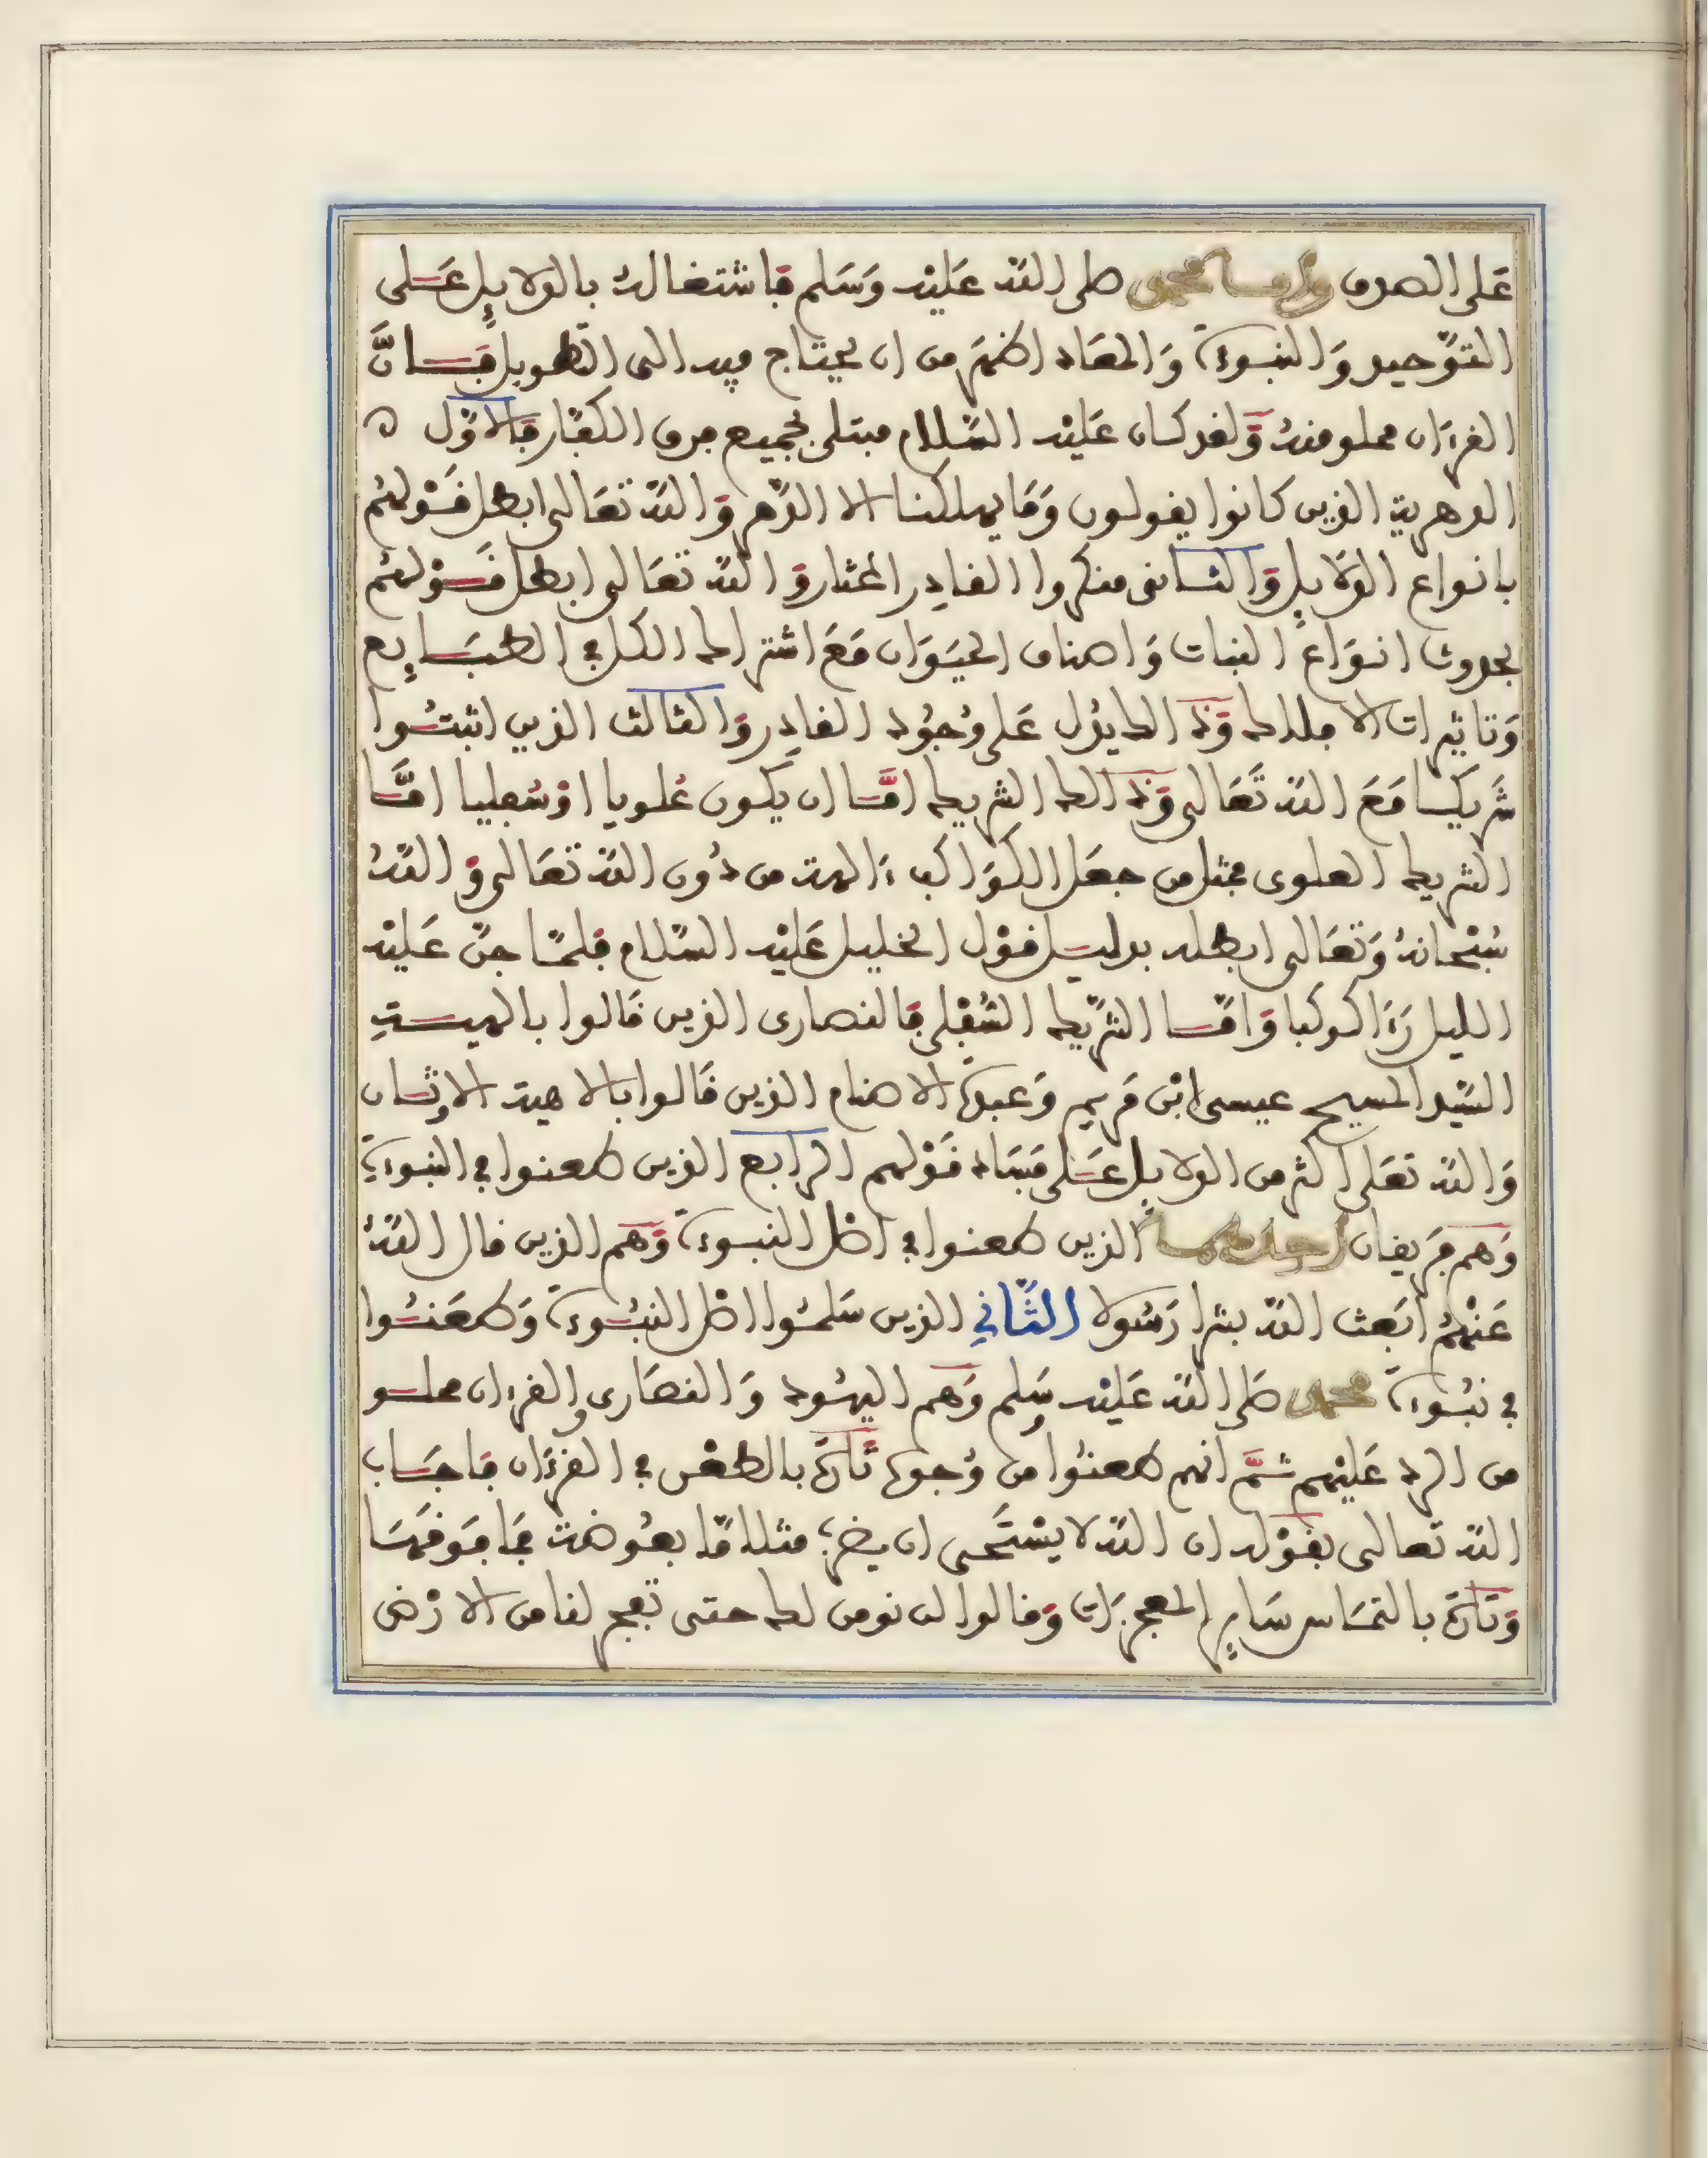 عَلى الصدق وامَّا محمد صلى اللّه عَليْه وَسَلم فاشتغاله بالدلايِل عَلى
التوّحيد وَالنبوءة وَالمعَاد اظهَر من ان يحتاج فيه الى التطويل فَانَّ
القرءَان مملو منهُ وَلقد كان عَليْه السّلام مبتلى بجميع فرق الكفّار فالاوّل ٥
الدهرية الذين كانوا يقولون وَمَا يهلكنا الا الدّهر وَاللّه تعَالى ابطل قَوْلهُم
بانواع الدّلايِل وَالثانى منكروا القادِر المختار وَاللّه تعَالى ابطل قَوْلهُم
بحدوث انوَاع النبات وَاصناف الحيَوَان مَعَ اشتراك الكل في الطبَايِع
وَتاثيرات الافلاك وَذالك يدُل عَلى وُجُود القادِر وَالثالث الذين اثبتُوا
شَريكا مَعَ اللّه تَعَالى وَذالك الشريك امَّا ان يكون عُلويا اوْ سُفليا امَّا
الشريك العلوى فمثل من جعَل الكوَاكب ءَالهة من دُون اللّه تعَالى وَاللّهُ
سُبْحانهُ وَتعَالى ابطله بدليل قوْل الخليل عَليْه السّلام فلمّا جنّ عَليْه
الليل رَءَا كوكبا وَامّا الشّريك السُّفلى فالنصارى الذين قَالوا بالهيةِ
السّيد المسيح عيسى ابْن مَريم وَعبدة الاصنام الذين قَالوا بالاهية الاوثان
وَاللّه تعَلى اكثر من الدلايل عَلى فسَاد قَوْلهم الرابع الذين طعنوا في النبوءة
وَهم فَريقان احدهما الذين طعنوا في اصْل النبوءة وَهم الذين قال اللّهُ
عَنْهُم ابَعث اللّه بشرا رَسُولا الثَّاني الذين سَلمُوا اصْل النبُوءة وَطعَنُوا
في نبُوءة محمد صَلى اللّه عَليْه وسَلم وَهم اليهُود وَالنصَارى والقرءان مملو
من الرد عَليْهم ثمَّ انهم طعنُوا من وُجوه تَارَة بالطعْن في القرءَان فاجَاب
اللّه تعالى بقوْله ان اللّه لا يسْتَحى ان يضرب مثلا مّا بعُوضة فمَا فوقهَا
وَتارَة بالتمَاس سَايِر المعجزات وَقالوا لن نومن لك حتى تفجر لنا من الارْض